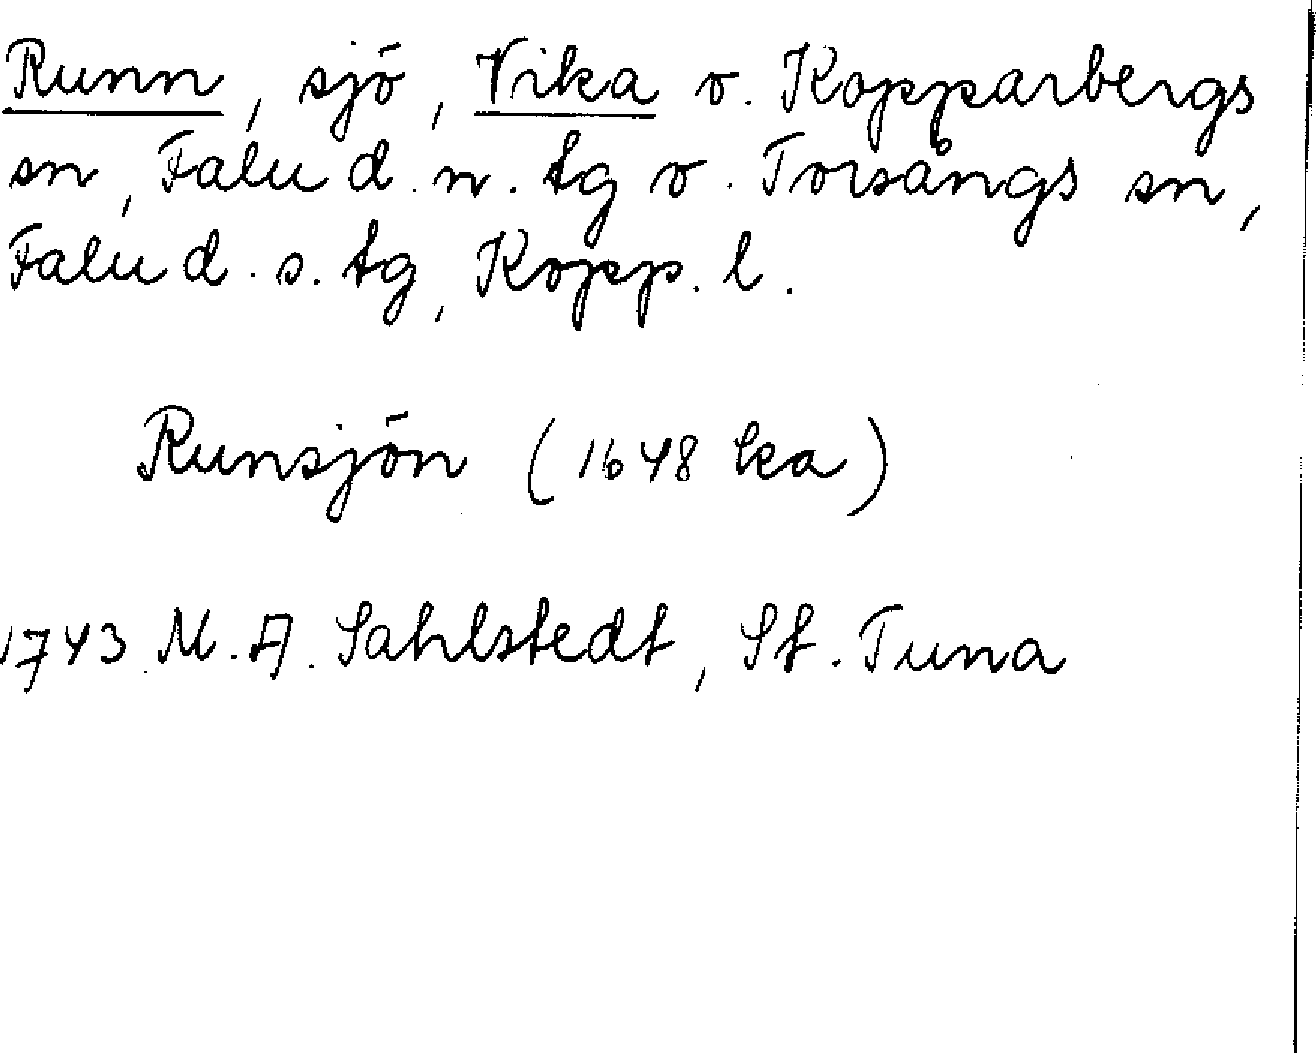 Runn, sjö, Vika o. Kopparbergs
sn, Falu d. n. tg o. Torsångs sn,
Falu d. s. tg, Kopp. l.
Runsjön (1648 ka)
1743 M. A. Sahlstedt, St. Tuna